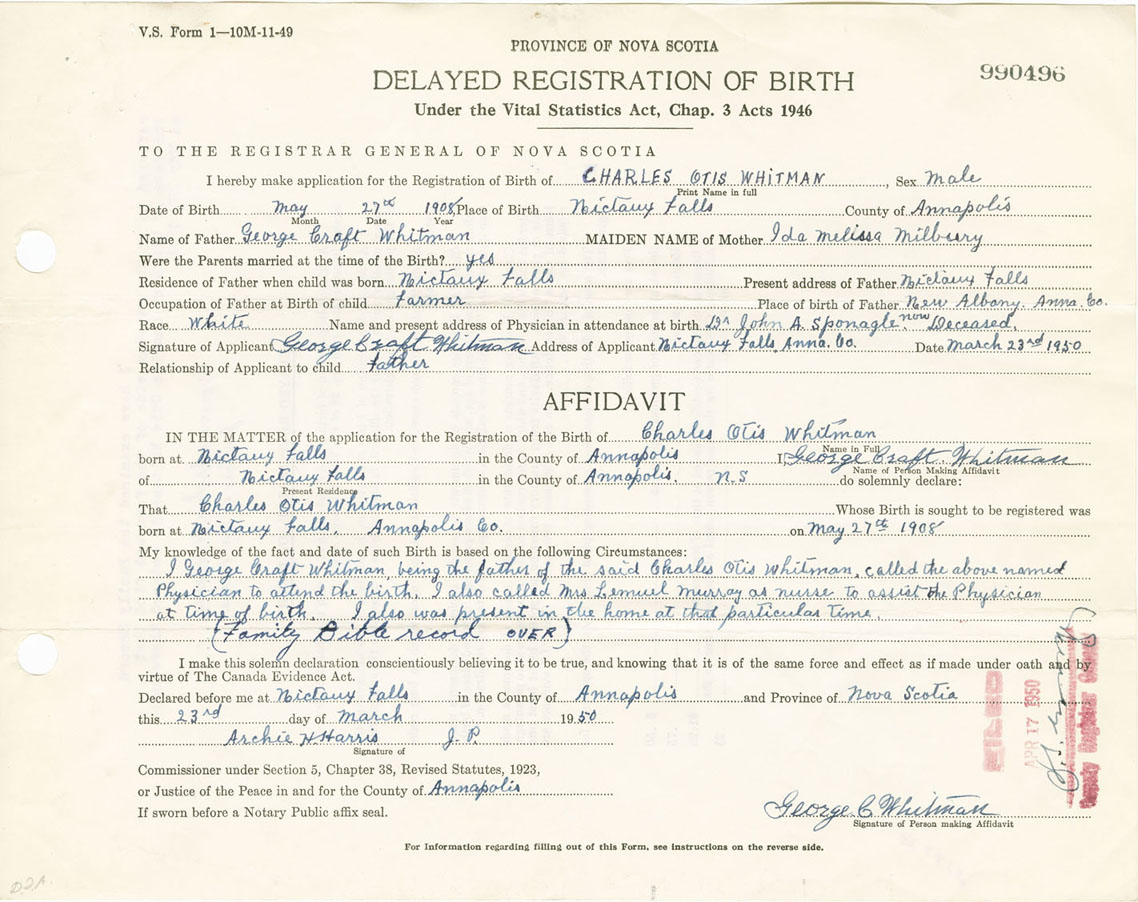 V.S. Form 1—10M-11-49
PROVINCE OF NOVA SCOTIA
990496
DELAYED REGISTRATION OF BIRTH
Under the Vital Statistics Act, Chap. 3 Acts 1946
TO THE REGISTRAR GENERAL OF NOVA SCOTIA
I hereby make application for the Registration of Birth of CHARLES OTIS WHITMAN, Sex Male
Print Name in full
Date of Birth May 27th 1908 Place of Birth Nictaux Falls County of Annapolis
Month Date Year
Name of Father George Craft Whitman MAIDEN NAME of Mother Ida Melissa Milbury
Were the Parents married at the time of the Birth? yes
Residence of Father when child was born Nictaux Falls Present address of Father Nictaux Falls
Occupation of Father at Birth of child Farmer Place of birth of Father New Albany, Anna. Co.
Race White Name and present address of Physician in attendance at birth Dr John A. Sponagle now Deceased.
Signature of Applicant George Craft Whitman Address of Applicant Nictaux Falls, Anna. Co. Date March 23rd 1950
Relationship of Applicant to child Father
AFFIDAVIT
IN THE MATTER of the application for the Registration of the Birth of Charles Otis Whitman
Name in Full
born at Nictaux Falls in the County of Annapolis I, George Craft Whitman
Name of Person Making Affidavit
of Nictaux Falls in the County of Annapolis. N.S do solemnly declare:
Present Residence
That Charles Otis Whitman Whose Birth is sought to be registered was
born at Nictaux Falls, Annapolis Co. on May 27th 1908
My knowledge of the fact and date of such Birth is based on the following Circumstances:
I George Craft Whitman, being the father of the said Charles Otis Whitman, called the above named
Physician to attend the birth. I also called Mrs. Lemuel Murray as nurse to assist the Physician
at time of birth. I also was present in the home at that particular time.
(Family Bible record OVER)
I make this solemn declaration conscientiously believing it to be true, and knowing that it is of the same force and effect as if made under oath and by
virtue of The Canada Evidence Act.
Declared before me at Nictaux Falls in the County of Annapolis and Province of Nova Scotia
this 23rd day of March 1950
Archie H. Harris J. P.
Signature of
Commissioner under Section 5, Chapter 38, Revised Statutes, 1923,
or Justice of the Peace in and for the County of Annapolis
If sworn before a Notary Public affix seal.
George C. Whitman
Signature of Person making Affidavit
For Information regarding filling out of this Form, see instructions on the reverse side.
FILED
APR 17 1950
Deputy Registrar General